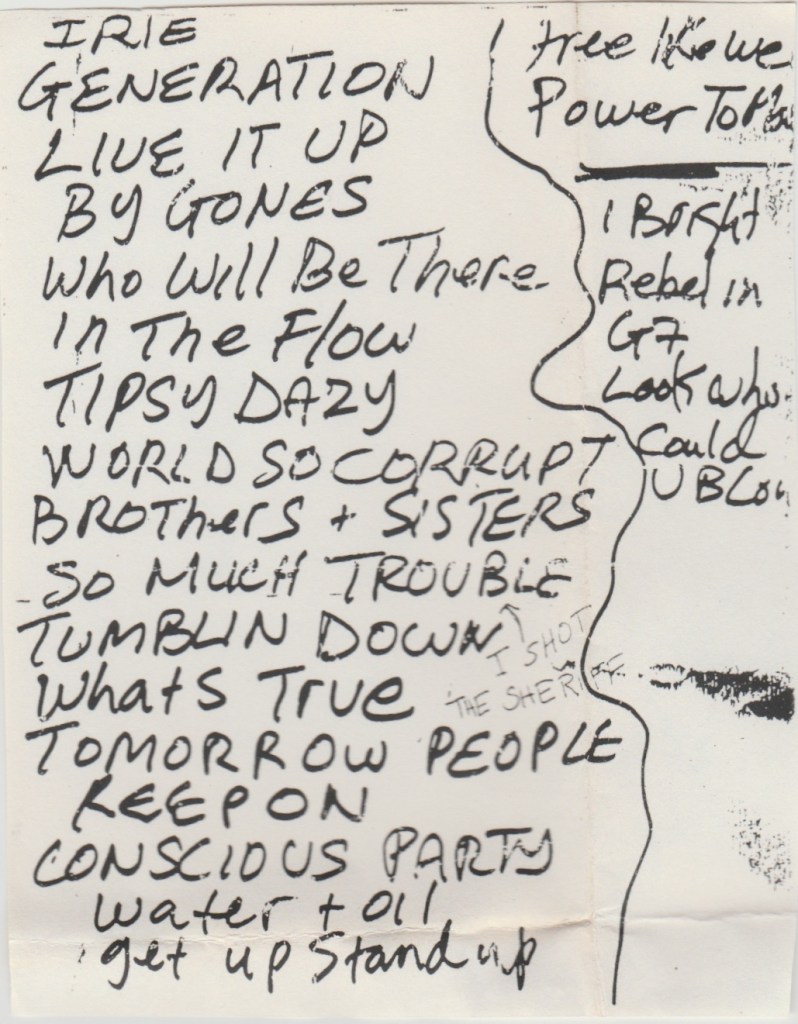 IRIE
GENERATION
LIVE IT UP
BY GONES
Who Will Be There
In The Flow
TIPSY DAZY
WORLD SO CORRUPT
BROThers + SISTERS
SO MUCH TROUBLE
TUMBLIN DOWN
↑
I SHOT
THE SHERIFF
Whats True
TOMORROW PEOPLE
KEEP ON
CONSCIOUS PARTY
water + oil
get up Stand up
free like we
Power To
1 Bright
Rebel in
G7
Look who
Could
U B